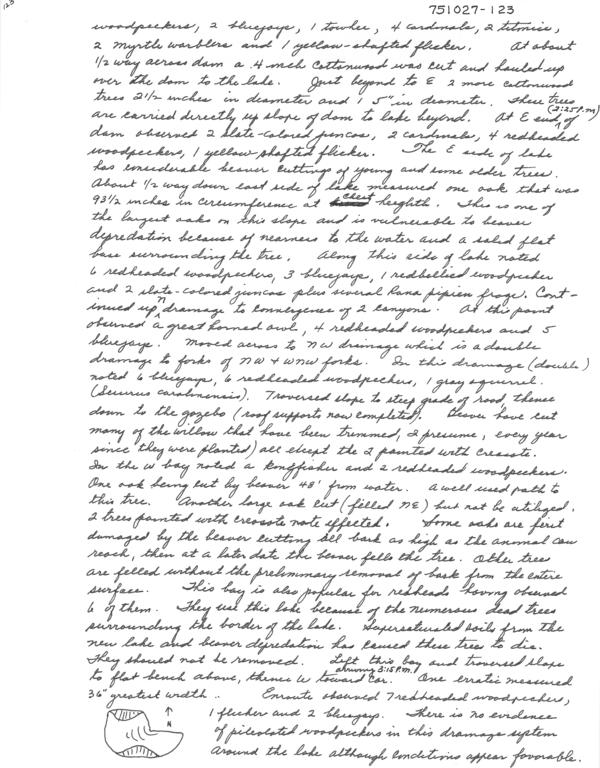 123
751027-123
woodpeckers, 2 bluejays, 1 towhee, 4 cardinals, 2 titmice,
2 Myrtle warblers and 1 yellow-shafted flicker. At about
1/2 way across dam a 4 inch Cottonwood was cut and hauled up
over the dam to the lake. Just beyond to E 2 more cottonwood
trees 2 1/2 inches in diameter and 1 5" in diameter. These trees
are carried directly up slope of dam to lake beyond. At E end, of (2:25 P.M)
dam observed 2 slate-colored juncos, 2 cardinals, 4 redheaded
woodpeckers, 1 yellow-shafted flicker. The E side of lake
has considerable beaver cuttings of young and some older trees.
About 1/2 way down east side of lake measured one oak that was
93 1/2 inches in circumference at chest heighth. This is one of
the largest oaks on this slope and is vulnerable to beaver
depredation because of nearness to the water and a solid flat
base surrounding the tree. Along this side of lake noted
6 redheaded woodpeckers, 3 bluejays, 1 redbellied woodpecker
and 2 slate-colored juncos plus several Rana pipien frogs. Cont-
inued up N drainage to convergence of 2 canyons. At this point
observed a great horned owl, 4 redheaded woodpeckers and 5
bluejays. Moved across to NW drainage which is a double
drainage to forks of NW + WNW forks. In this drainage (double)
noted 6 bluejays, 6 redheaded woodpeckers, 1 gray squirrel.
(Sciurus carolinensis). Traversed slope to steep grade of road, thence
down to the gazebo (roof supports now completed). Beaver have cut
many of the willow that have been trimmed, I presume, every year
since they were planted) all except the 2 painted with creosote.
In the W bay noted a Kingfisher and 2 redheaded woodpeckers.
One oak being cut by beaver 48' from water. A well used path to
this tree. Another large oak cut (felled NE) but not be utilized.
2 trees painted with creosote note effected. Some oaks are first
damaged by the beaver cutting all bark as high as the animal can
reach, then at a later date the beaver fells the tree. Other trees
are felled without the preliminary removal of bark from the entire
surface. This bay is also popular for redheads having observed
6 of them. They use this lake because of the numerous dead trees
surrounding the border of the lake. Supersaturated soils from the
new lake and beaver depredation has caused these trees to die.
They should not be removed. Left this bay and traversed slope
to flat bench above, thence W toward car. arriving 3:15 P.M. One erratic measured
36" greatest width.. Enroute observed 7 redheaded woodpeckers,
1 flicker and 2 bluejays. There is no evidence
of pileolated woodpeckers in this drainage system
around the lake although conditions appear favorable.
N